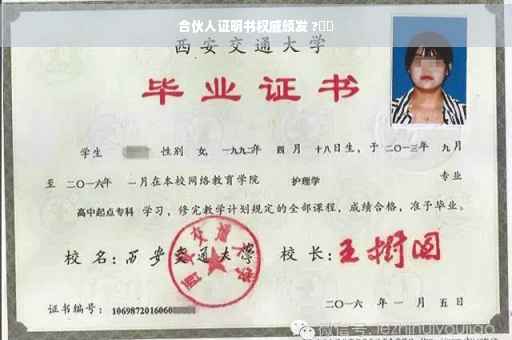 合伙人证明书权威颁发 ?
西安交通大学
毕业证书
学生 性别 女, 一九九二年 四 月 十八日生, 于 二〇一三年 九月
至 二〇一六年 一月在本校网络教育学院 护理学 专业
高中起点专科 学习, 修完教学计划规定的全部课程, 成绩合格, 准予毕业。
校 名: 西安交通大学 校 长: 王树国
西安交通大学
证书编号: 1069872016060
二〇一六 年 一 月 五 日
微信号: lezhihuiyoujiao